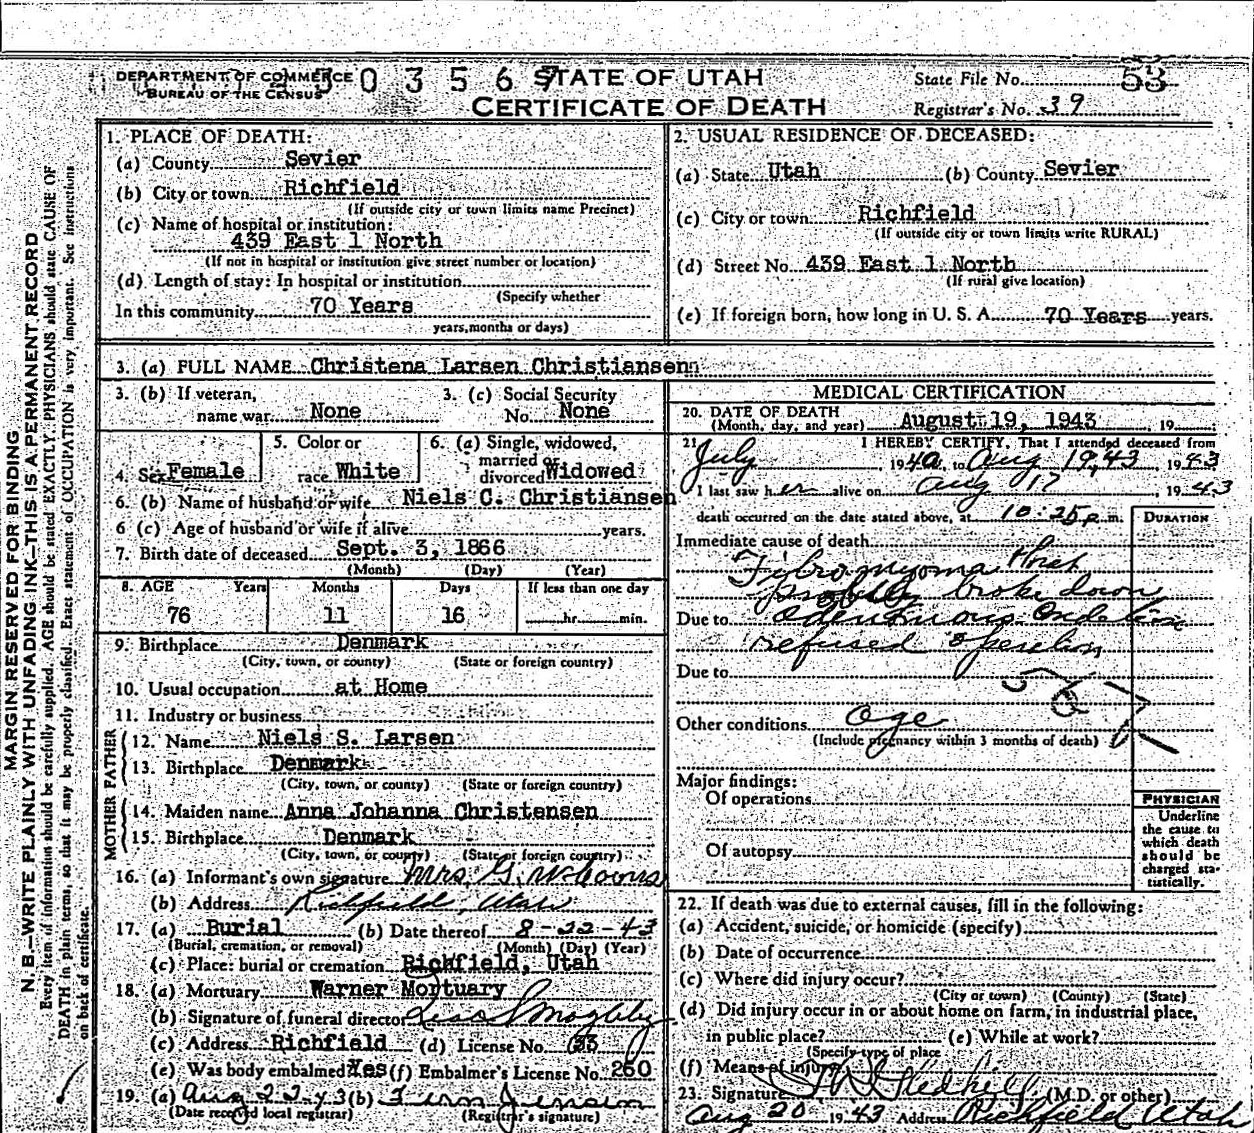 DEPARTMENT OF COMMERCE
BUREAU OF THE CENSUS
3 0 3 5 6
STATE OF UTAH
CERTIFICATE OF DEATH
State File No. 53
Registrar's No. 39
MARGIN RESERVED FOR BINDING
N. B.—WRITE PLAINLY WITH UNFADING INK—THIS IS A PERMANENT RECORD
Every item of information should be carefully supplied. AGE should be stated EXACTLY. PHYSICIANS should state CAUSE OF
DEATH in plain terms, so that it may be properly classified. Exact statement of OCCUPATION is very important. See instructions
on back of certificate.
1. PLACE OF DEATH:
(a) County Sevier
(b) City or town Richfield
(If outside city or town limits name Precinct)
(c) Name of hospital or institution:
439 East 1 North
(If not in hospital or institution give street number or location)
(d) Length of stay: In hospital or institution
(Specify whether
In this community 70 Years
years, months or days)
2. USUAL RESIDENCE OF DECEASED:
(a) State Utah (b) County Sevier
(c) City or town Richfield
(If outside city or town limits write RURAL)
(d) Street No. 439 East 1 North
(If rural give location)
(e) If foreign born, how long in U. S. A. 70 Years years.
3. (a) FULL NAME Christena Larsen Christiansen
3. (b) If veteran,
name war None
3. (c) Social Security
No. None
4. Sex Female
5. Color or
race White
6. (a) Single, widowed,
married or
divorced Widowed
6. (b) Name of husband or wife Niels C. Christiansen
6 (c) Age of husband or wife if alive years.
7. Birth date of deceased Sept. 3, 1866
(Month) (Day) (Year)
8. AGE Years Months Days If less than one day
76 11 16 hr. min.
9. Birthplace Denmark
(City, town, or county) (State or foreign country)
10. Usual occupation at Home
11. Industry or business
FATHER
12. Name Niels S. Larsen
13. Birthplace Denmark
(City, town, or county) (State or foreign country)
MOTHER
14. Maiden name Anna Johanna Christensen
15. Birthplace Denmark
(City, town, or county) (State or foreign country)
16. (a) Informant's own signature Mrs. G. W.
(b) Address Richfield, Utah
17. (a) Burial (b) Date thereof 8-22-43
(Burial, cremation, or removal) (Month) (Day) (Year)
(c) Place: burial or cremation Richfield, Utah
18. (a) Mortuary Warner Mortuary
(b) Signature of funeral director
(c) Address Richfield (d) License No. 33
(e) Was body embalmed Yes (f) Embalmer's License No. 260
19. (a) Aug 22-43 (b) Fern Jensen
(Date received local registrar) (Registrar's signature)
MEDICAL CERTIFICATION
20. DATE OF DEATH
(Month, day, and year) August 19, 1943, 19
21. I HEREBY CERTIFY, That I attended deceased from
July 1940, to Aug 19, 43 1943
I last saw her alive on Aug 17, 1943
death occurred on the date stated above, at 10:25 p m.
DURATION
Immediate cause of death
Fibromyoma that
probably broke down
Due to condition
refused operation
Due to
Other conditions age
(Include pregnancy within 3 months of death)
Major findings:
Of operations
Of autopsy
PHYSICIAN
Underline
the cause to
which death
should be
charged sta-
tistically.
22. If death was due to external causes, fill in the following:
(a) Accident, suicide, or homicide (specify)
(b) Date of occurrence
(c) Where did injury occur?
(City or town) (County) (State)
(d) Did injury occur in or about home on farm, in industrial place,
in public place? (e) While at work?
(Specify type of place
(f) Means of injury
23. Signature (M.D. or other)
Aug 20 1943 Address Richfield Utah